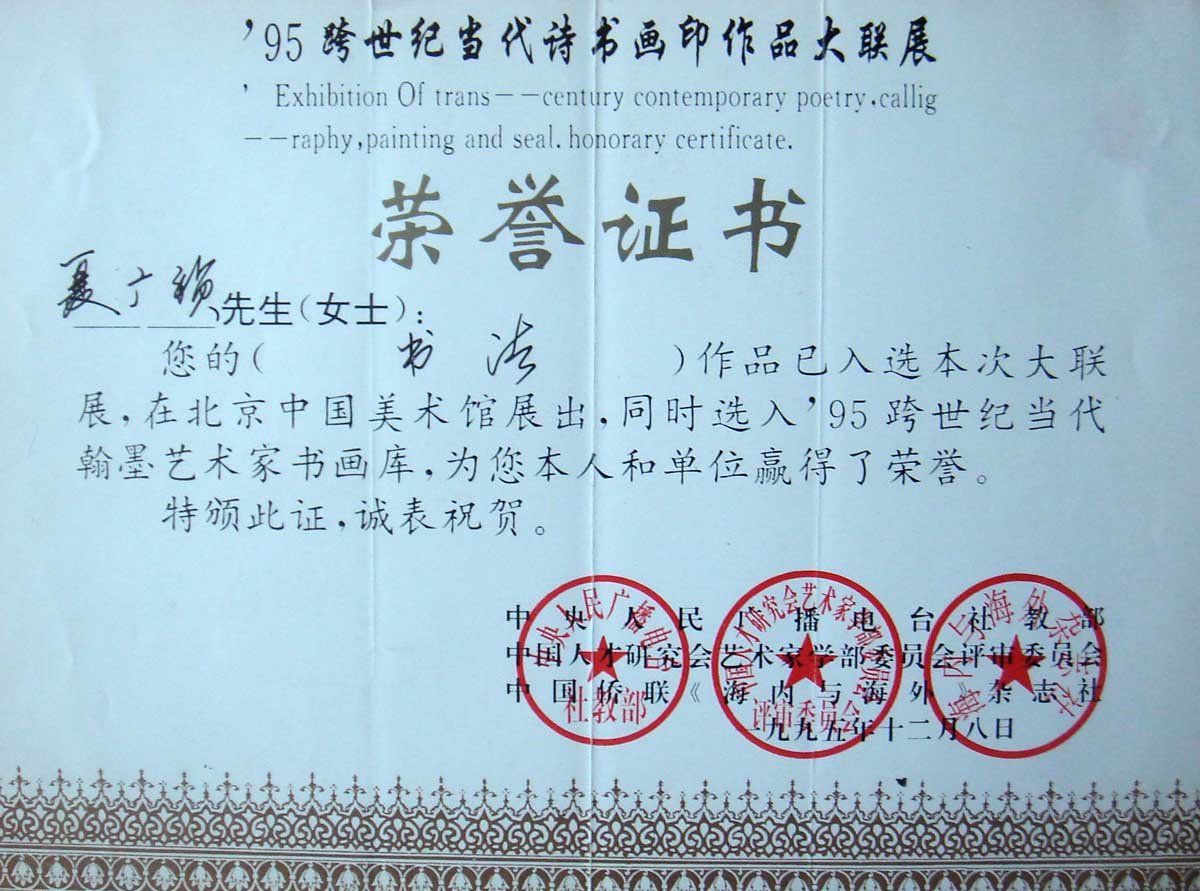 ’95跨世纪当代诗书画印作品大联展
’ Exhibition Of trans——century contemporary poetry,callig
——raphy,painting and seal. honorary certificate.
荣誉证书
夏广祯先生(女士):
您的( 书法 )作品已入选本次大联
展,在北京中国美术馆展出,同时选入’95跨世纪当代
翰墨艺术家书画库,为您本人和单位赢得了荣誉。
特颁此证,诚表祝贺。
中央人民广播电台社教部
中国人才研究会艺术家学部委员会评审委员会
中国侨联《海内与海外》杂志社
一九九五年十二月八日
中央人民广播电台
社教部
中国人才研究会艺术家学部委员会
评审委员会
海内与海外杂志社